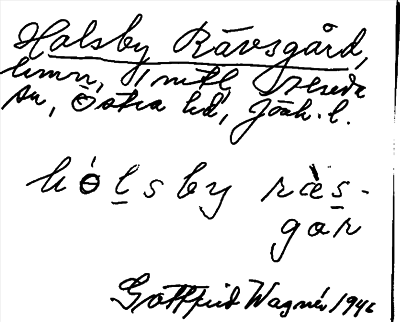 Holsby Rävsgård,
hmn, i mtl Vetseda
sn, Östra hd, Jönk. l.
hólsby ræ̀s-
gar
Gottfrid Wagnér 1946